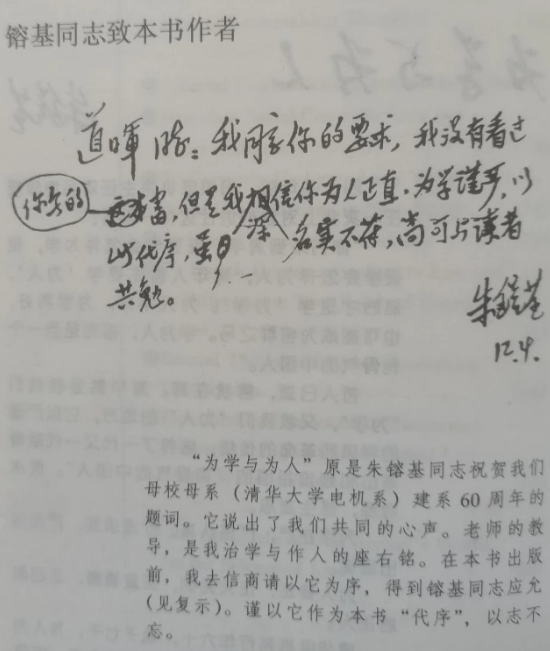 镕基同志致本书作者
道晖兄：我同意你的要求，我没有看过
你写的这本书，但是我深相信你为人正直，为学谨严，以
此代序，虽名实不符，尚可与读者
共勉。
朱镕基
12.4.
“为学与为人”原是朱镕基同志祝贺我们
母校母系（清华大学电机系）建系60周年的
题词。它说出了我们共同的心声。老师的教
导，是我治学与作人的座右铭。在本书出版
前，我去信商请以它为序，得到镕基同志应允
（见复示）。谨以它作为本书“代序”，以志不
忘。